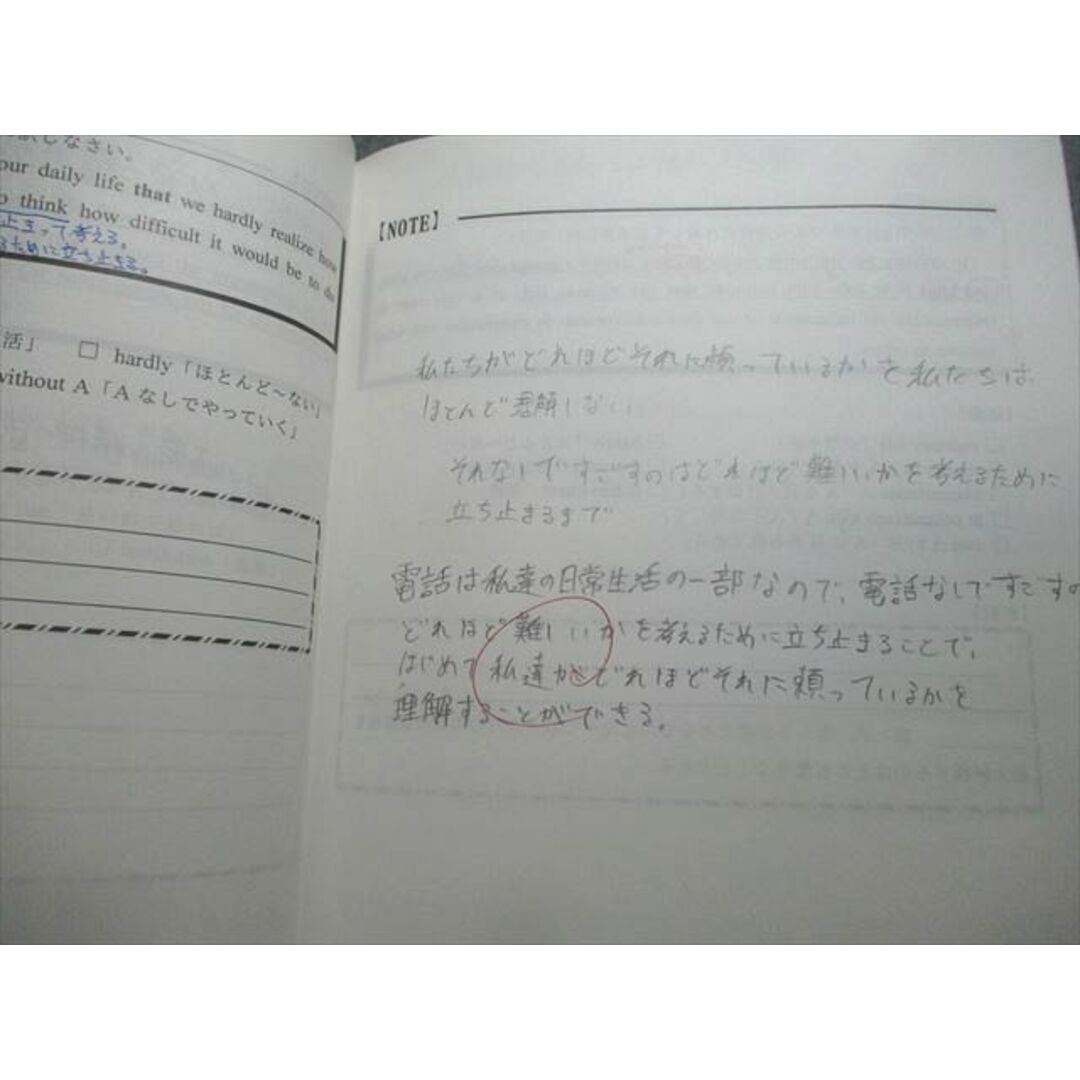 訳しなさい。
our daily life that we hardly realize how
think how difficult it would be to do
止まって考える。
ために立ち止まる。
活」 □ hardly「ほとんど〜ない」
without A「Aなしでやっていく」
【NOTE】
私たちがどれほどそれに頼っているかを私たちは
ほとんど理解しない
それなしですごすのはどれほど難しいかを考えるために
立ち止まるまで
電話は私達の日常生活の一部なので、電話なしですごすの
どれほど難しいかを考えるために立ち止まることで、
はじめて私達がどれほどそれに頼っているかを
理解することができる。